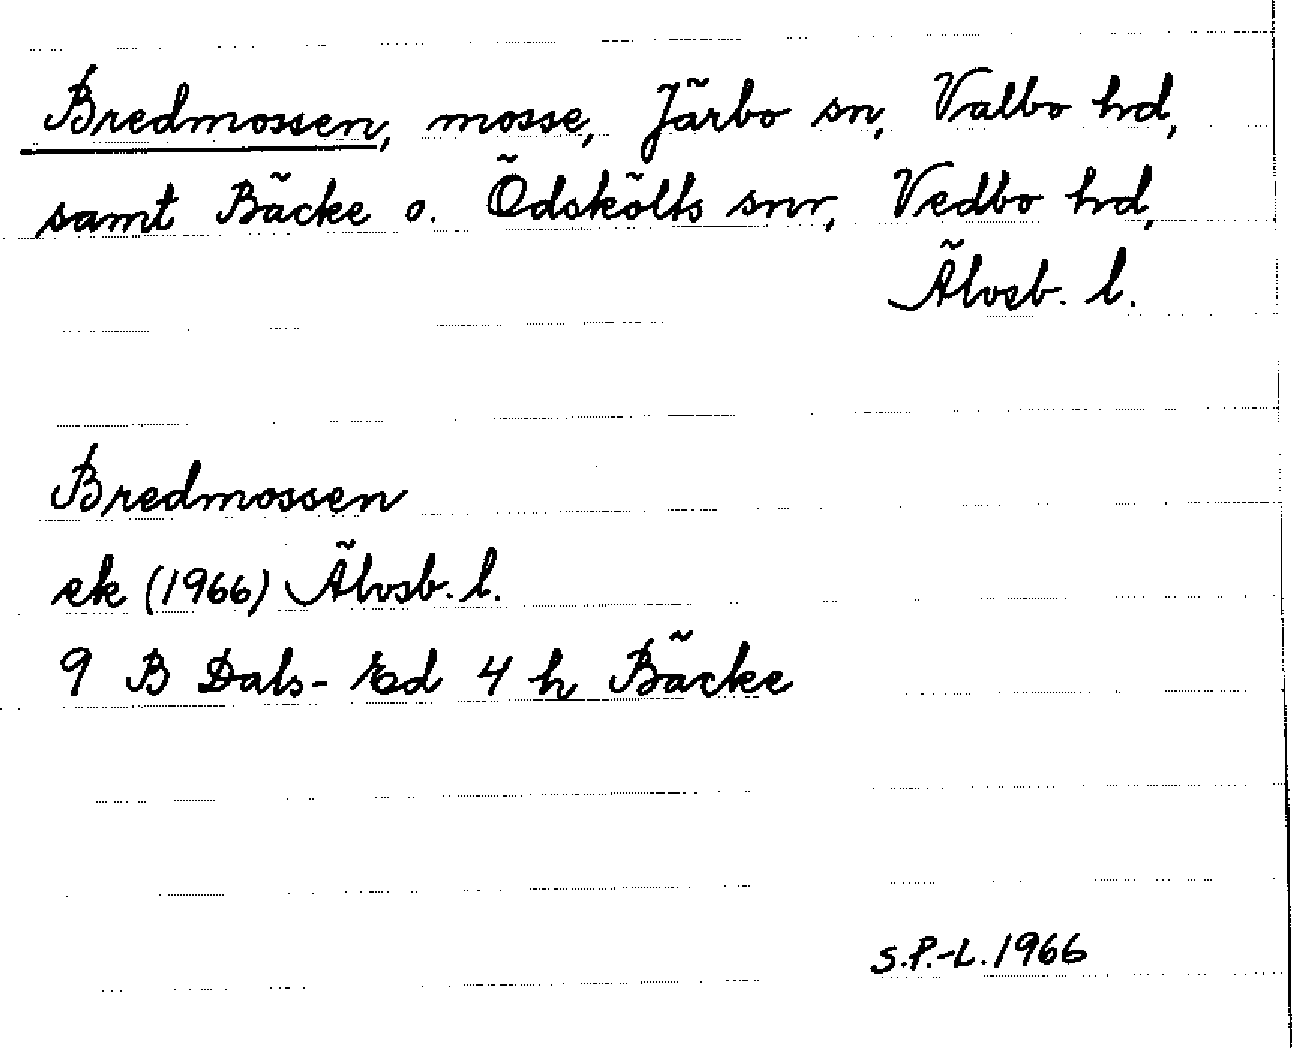 Bredmossen, mosse, Järbo sn, Valbo hd,
samt Bäcke o. Ödskölts snr, Vedbo hd,
Älvsb. l.
Bredmossen
ek (1966) Älvsb. l.
9 B Dals-Ed 4 h Bäcke
S.P.-L. 1966